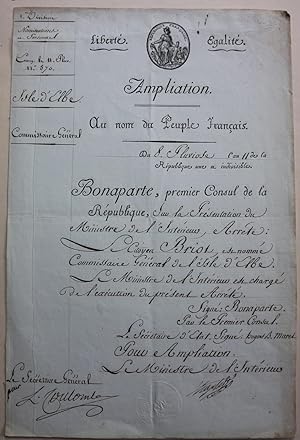 Division
Nominations
Personnel
Liberté.
Égalité.
Isle d'Elbe
Commissaire Général
Ampliation.
Au nom du Peuple Français.
Du 8. Pluviose l'an 11 de la
République une et indivisible.
Bonaparte, premier Consul de la
République, Sur la Présentation du
Ministre de l'Interieur, Arrête:
Le Citoyen Briot est nommé
Commissaire Général de l'isle d'Elbe.
Le Ministre de l'Interieur est chargé
de l'exécution du présent Arrêté.
Signé Bonaparte.
Par le Premier Consul.
Le Secrétaire d'Etat, Signé, hugues B. Maret
Pour Ampliation
Le Ministre de l'Interieur
Le Secrétaire Général
Coulomb